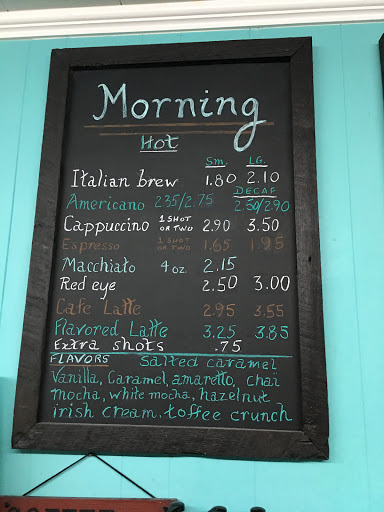 Morning
Hot
Sm. LG.
Italian brew 1.80 2.10
DECAF
Americano 2.35/2.75 2.30/2.90
Cappuccino 1 SHOT OR TWO 2.90 3.50
Espresso 1 SHOT OR TWO 1.65 1.95
Macchiato 4 oz 2.15
Red eye 2.50 3.00
Cafe Latte 2.95 3.55
Flavored Latte 3.25 3.85
Extra shots .75
FLAVORS Salted caramel
Vanilla, Caramel, amaretto, chai
mocha, white mocha, hazelnut
irish cream, toffee crunch